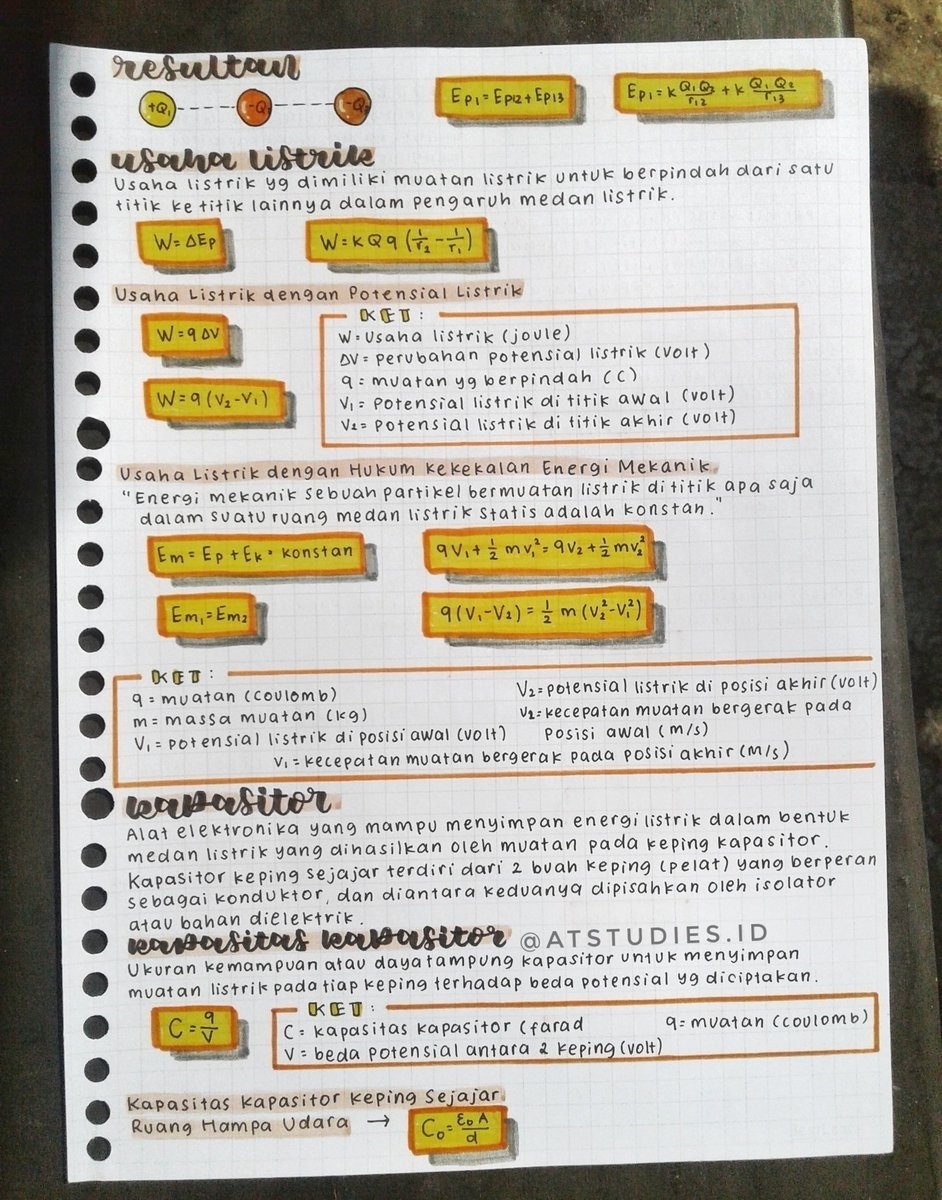 resultan
+Q₁ -Q₂ -Q₃
Ep₁ = Ep12 + Ep13
Ep₁ = k Q₁Q₃/r₁₂ + k Q₁Q₂/r₁₃
usaha listrik
Usaha listrik yg dimiliki muatan listrik untuk berpindah dari satu
titik ke titik lainnya dalam pengaruh medan listrik.
W = ΔEp
W = k Q q (1/r₂ - 1/r₁)
Usaha Listrik dengan Potensial Listrik
W = q ΔV
W = q (V₂-V₁)
KET:
W = Usaha listrik (joule)
ΔV = perubahan potensial listrik (volt)
q = muatan yg berpindah (C)
V₁ = Potensial listrik di titik awal (volt)
V₂ = Potensial listrik di titik akhir (volt)
Usaha Listrik dengan Hukum Kekekalan Energi Mekanik.
"Energi mekanik sebuah partikel bermuatan listrik di titik apa saja
dalam suatu ruang medan listrik statis adalah konstan."
Em = Ep + Ek = konstan
qV₁ + ½ mv₁² = qV₂ + ½ mv₂²
Em₁ = Em₂
q (V₁-V₂) = ½ m (v₂²-v₁²)
KET:
q = muatan (coulomb)
m = massa muatan (kg)
V₁ = potensial listrik di posisi awal (volt)
V₂ = potensial listrik di posisi akhir (volt)
v₂ = kecepatan muatan bergerak pada
posisi awal (m/s)
v₁ = kecepatan muatan bergerak pada posisi akhir (m/s)
kapasitor
Alat elektronika yang mampu menyimpan energi listrik dalam bentuk
medan listrik yang dihasilkan oleh muatan pada keping kapasitor.
Kapasitor keping sejajar terdiri dari 2 buah keping (pelat) yang berperan
sebagai konduktor, dan diantara keduanya dipisahkan oleh isolator
atau bahan dielektrik.
kapasitas kapasitor @ATSTUDIES.ID
Ukuran kemampuan atau daya tampung kapasitor untuk menyimpan
muatan listrik pada tiap keping terhadap beda potensial yg diciptakan.
C = q/V
KET:
C = kapasitas kapasitor (farad
q = muatan (coulomb)
V = beda potensial antara 2 keping (volt)
Kapasitas Kapasitor Keping Sejajar
Ruang Hampa Udara → C₀ = ε₀ A/d